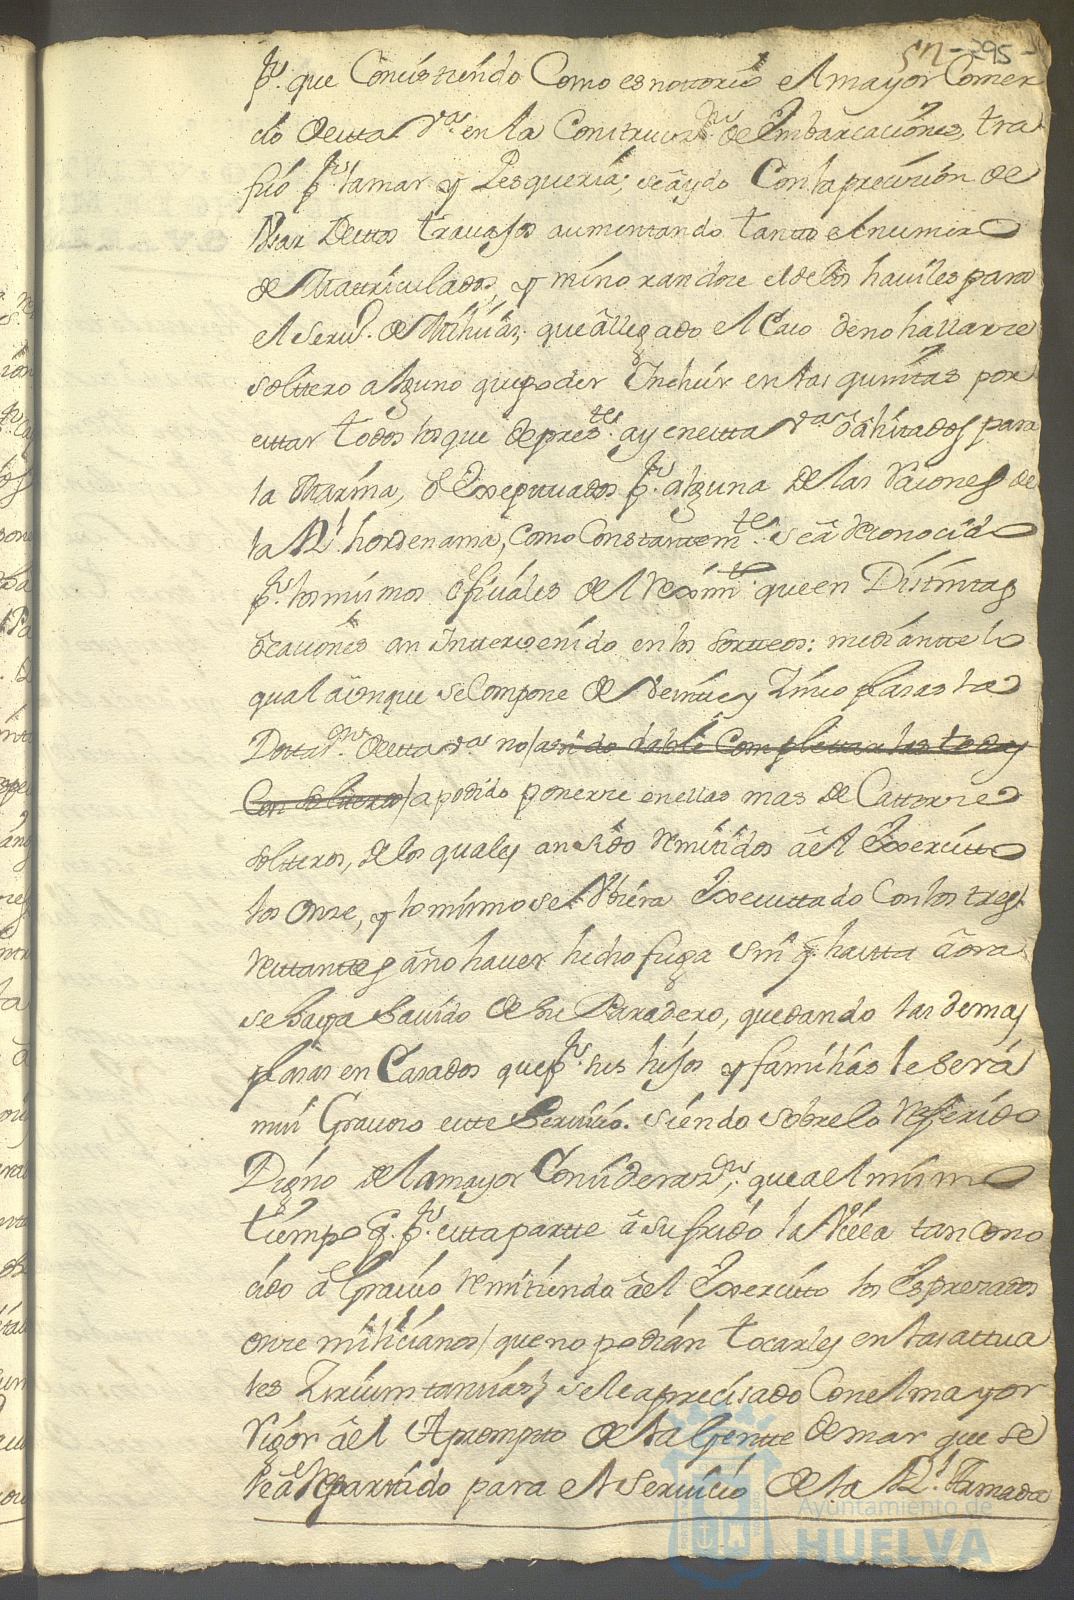 sn - 295 -
pr. que Concistiendo Como es nottorio el mayor Comer
cio de esta Va. en la Construczn. de Embarcaciones, tra
fico pr. la mar y Pesqueria, se a ydo Con la precicion de
Usar de estos travajos aumentando tanto el numero
de Matriculados, y minorandose el de los haviles para
el servo. de Milicias, que a llegado el Caso de no hallarse
soltero alguno que poder Incluir en las quintas por
estar todos los que de preste. ay en esta Va. o alistados para
la Marina, o Exeptuados pr. alguna de las raciones de
la Rl. hordenansa, como Constantemte. se a reconocido
pr. los mismos oficiales de el reximto. que en Distintas
ocaciones an Intervenido en los sorteos: mediante lo
qual aunque se Compone de veinte y Zinco plasas la
Dottazn. de esta Va. no /a sido dable Complettar las todas
Con solteros/ a podido ponerse en ellas mas de Cattorse
solteros, de los quales an sido remitidos a el Exercitto
los onse, y lo mismo se Ubiera Executtado Con los tres
restantes a no haver hecho fuga sin q. hasta aora
se haya savido de su Paradero, quedando las demas
plasas en Casados que pr. sus hijos y familias le sera
mui Gravoso este Servicio. siendo sobre lo referido
Digno de la mayor Considerazn. que a el mismo
tiempo q. pr. esta parte a sufrido la Villa tan cono
cido a Gravio remitiendo a el Exercitto los Expresados
onse milicianos/ que no podian tocarles en las actua
les Zircumtancias/ se le a precisado Con el mayor
rigor a el Apromptto de la Gente de mar que se
le a repartido para el servicio de la Rl. Armada
Ayuntamiento de
HUELVA